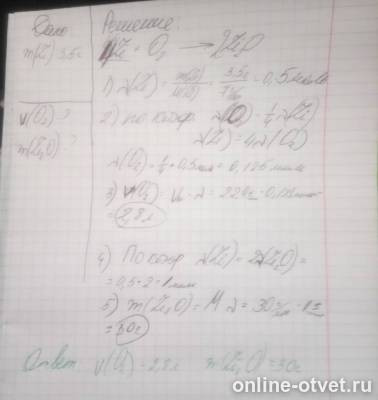 Дано
m(Li) 3,5г
V(O₂) ?
m(Li₂O) ?
Решение:
4Li + O₂ → 2Li₂O
1) ν(Li) = m(Li)/M(Li) = 3,5г/7 = 0,5моль
2) по коэф ν(O₂) = ¼ ν(Li)
ν(Li) = 4ν(O₂)
ν(O₂) = ¼ * 0,5моль = 0,125 моль
3) V(O₂) = Vm · ν = 22,4 · 0,125моль
= 2,8л
4) По коэф ν(Li) = 2ν(Li₂O) =
= 0,5 · 2 = 1моль
5) m(Li₂O) = M ν = 30г/моль · 1
= 30г
Ответ V(O₂) = 2,8л m(Li₂O) = 30г
online-otvet.ru